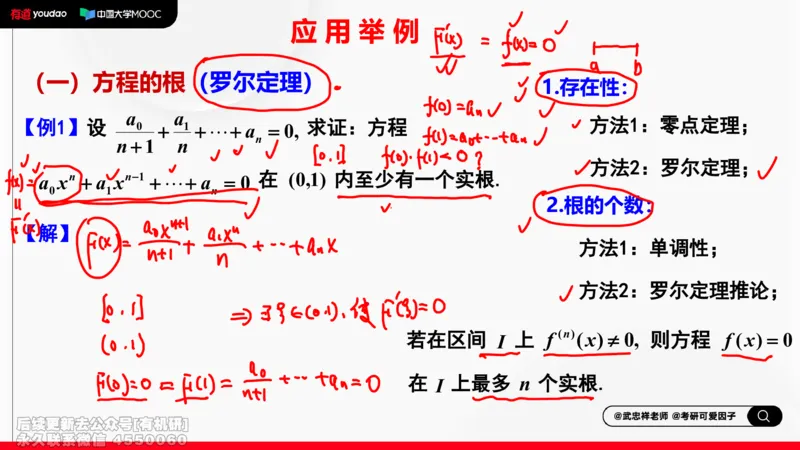 有道 youdao 中国大学MOOC
应用举例
F'(x) = f(x)=0
a b
(一) 方程的根 (罗尔定理)
1.存在性:
f(0)=aₙ
【例1】设 a₀/(n+1) + a₁/n + ⋯ + aₙ = 0, 求证: 方程
f(1)=a₀+⋯+aₙ
方法1: 零点定理;
[0,1] f(0)·f(1)<0 ?
f(x)= a₀xⁿ + a₁xⁿ⁻¹ + ⋯ + aₙ = 0 在 (0,1) 内至少有一个实根.
方法2: 罗尔定理;
F'(x)
2.根的个数:
【解】 F(x) = a₀xⁿ⁺¹/(n+1) + a₁xⁿ/n + ⋯ + aₙx
方法1: 单调性;
方法2: 罗尔定理推论;
[0,1] ⇒ ∃ξ∈(0,1), 使 F'(ξ)=0
(0,1)
若在区间 I 上 f⁽ⁿ⁾(x) ≠ 0, 则方程 f(x) = 0
F(0)=0 = F(1) = a₀/(n+1) + ⋯ + aₙ = 0
在 I 上最多 n 个实根.
@武忠祥老师 @考研可爱因子
后续更新去公众号[有机研]
永久联系微信 4550060